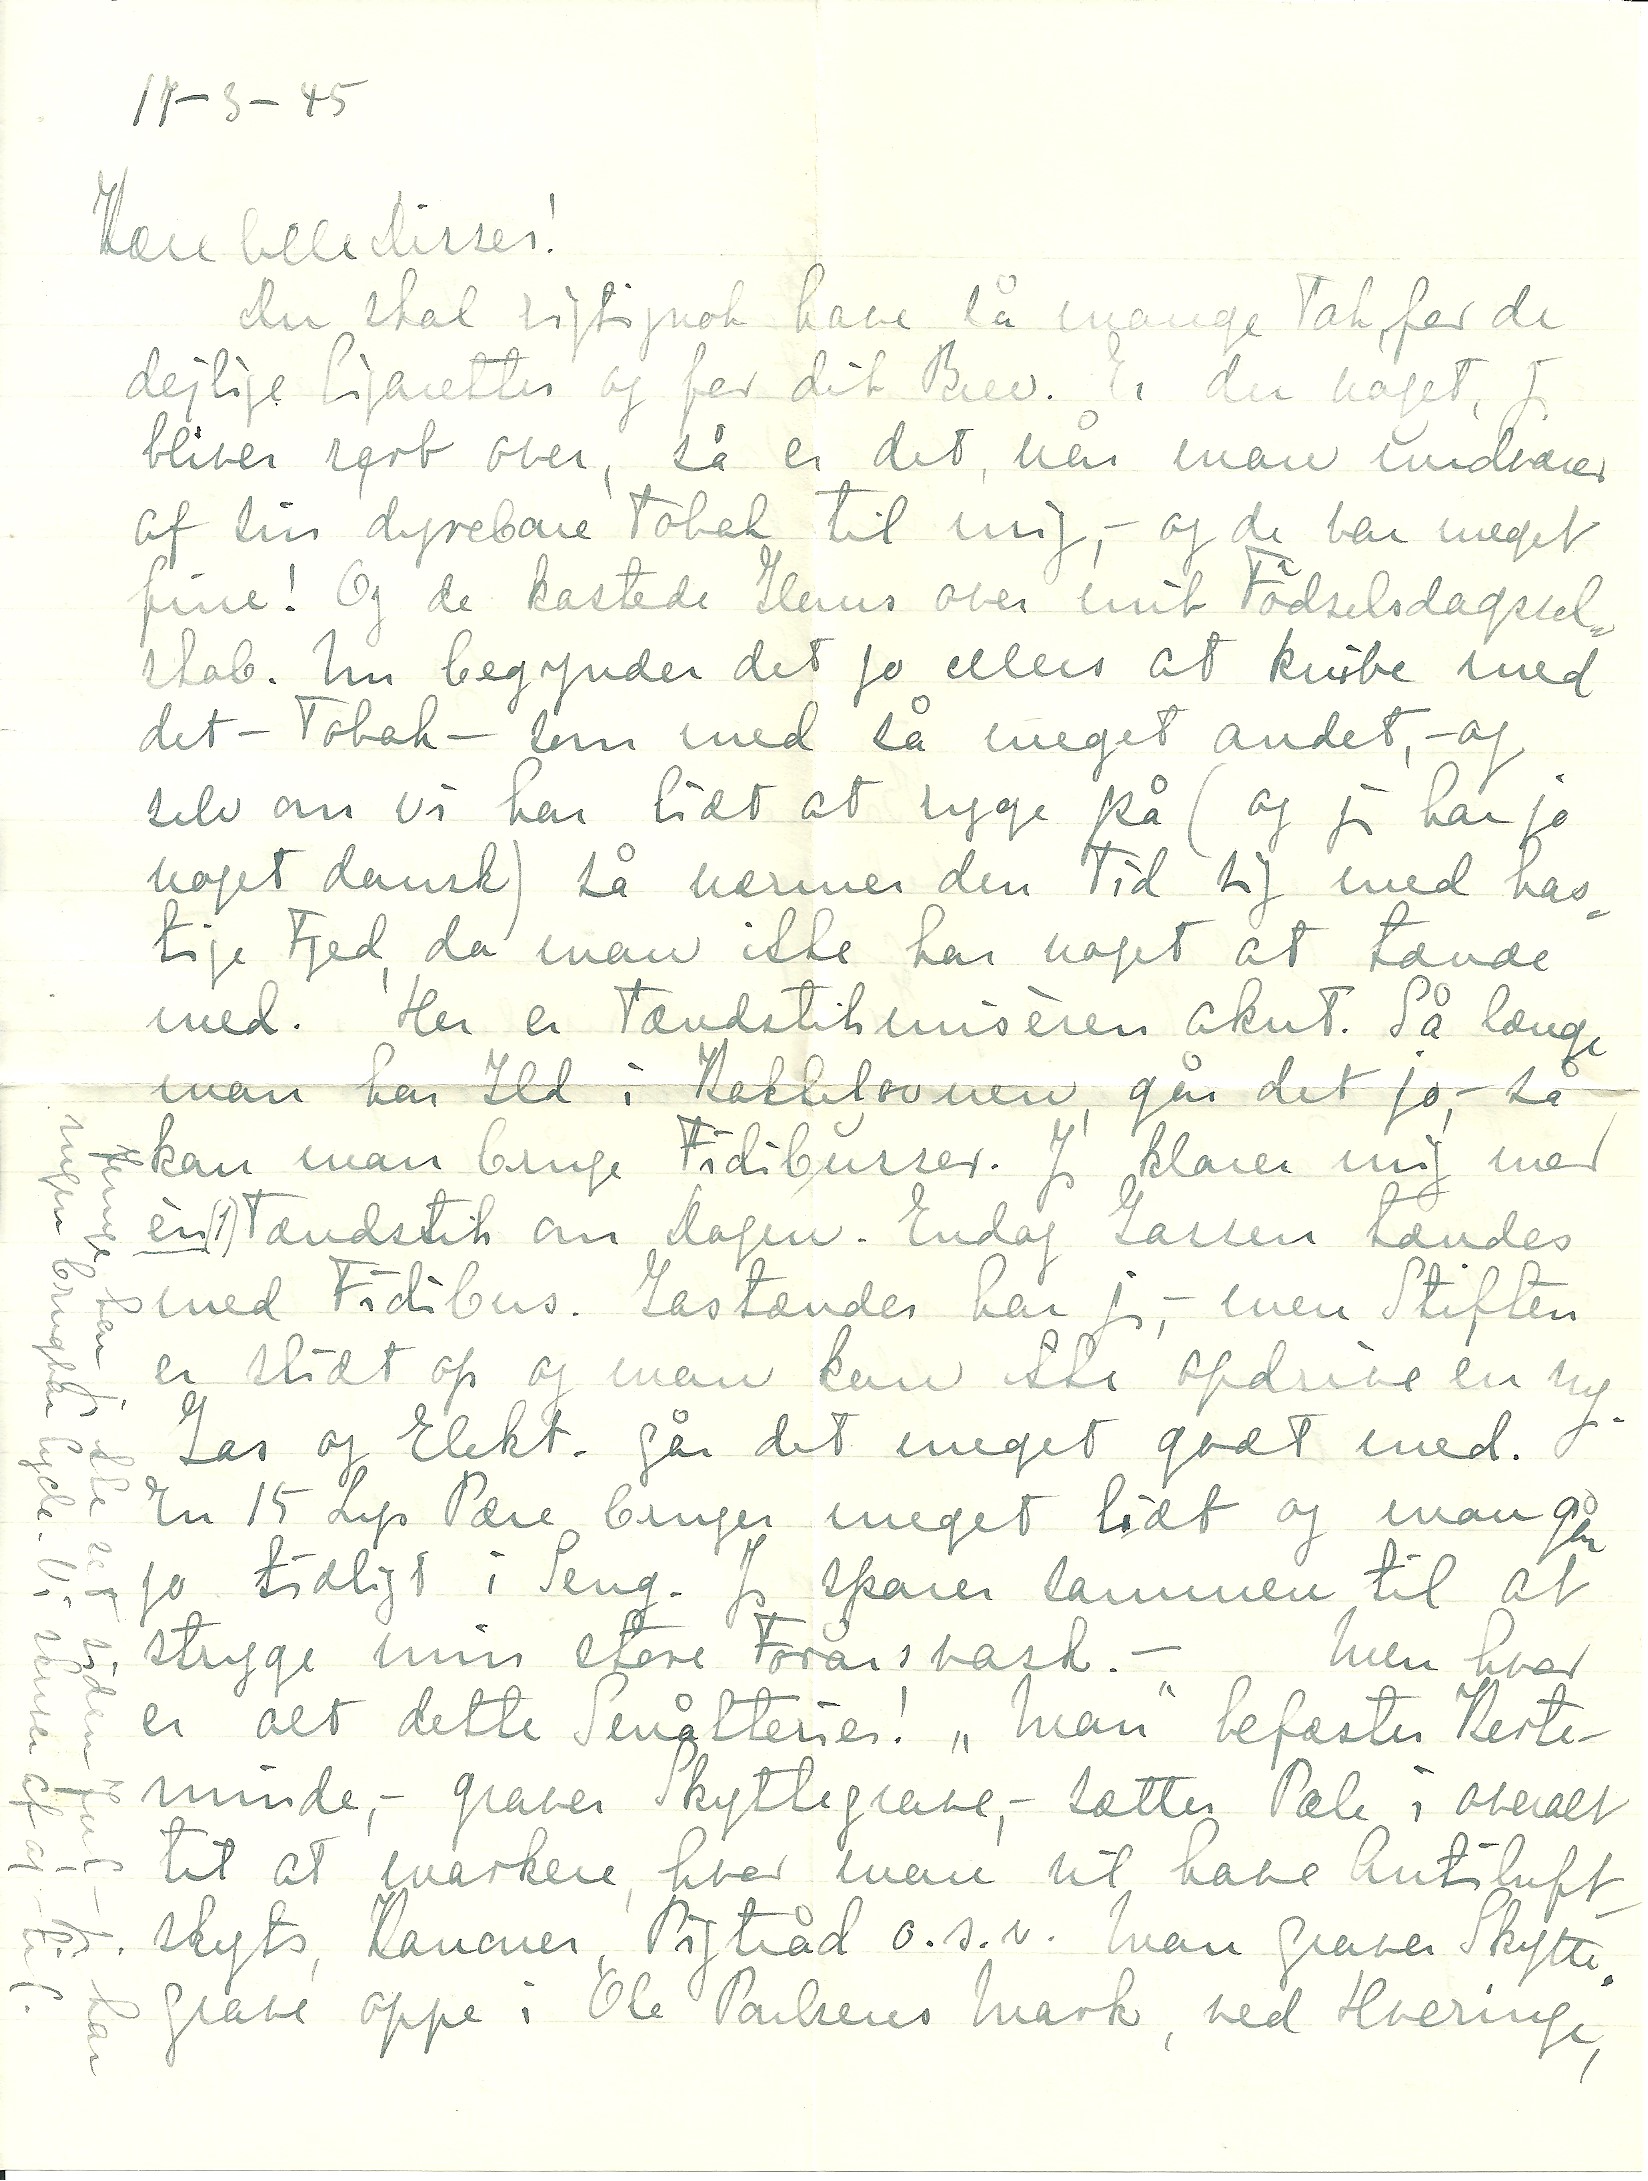 17-3-45
Kære lille Disser!
Du skal rigtignok have så mange Tak for de
dejlige Cigaretter og for dit Brev. Er der noget, j.
bliver rørt over, så er det, når man undværer
af sin dyrebare Tobak til mig, - og de var meget
fine! Og de kastede Glans over mit Födselsdagssel„
skab. Nu begynder det jo ellers at knibe med
det - Tobak - som med så meget andet, - og
selv om vi har lidt at ryge på (og j. har jo
noget dansk) så nærmer den Tid sig med has„
tige Fjed, da man ikke har noget at tænde
med. Her er Tændstikmisèren akut. Så længe
man har Ild i Kakkelovnen, går det jo, - så
kan man bruge Fidibusser. J. klarer mig med
èn (1) Tændstik om Dagen. Endog Gassen tændes
med Fidibus. Gastænder har j., - men Stiften
er slidt op og man kan ikke opdrive en ny.
Gas og Elekt. går det meget godt med.
En 15 Lys Pære bruger meget lidt og man går
jo tidligt i Seng. J. sparer sammen til at
stryge min store Forårsvask. - Men hvad
er alt dette Småtterier! „Man" befæster Kerte-
minde, - graver Skyttegrave, - sætter Pæle i overalt
til at markere, hvor man vil have Antiluft
skyts, Kanoner, Pigtråd o.s.v. Man graver Skytte„
grave oppe i Ole Poulsens Mark, ved Hveringe,
har j. ikke set siden Jul - j. har
ingen brugbar Cycle. Vi skriver af og til.